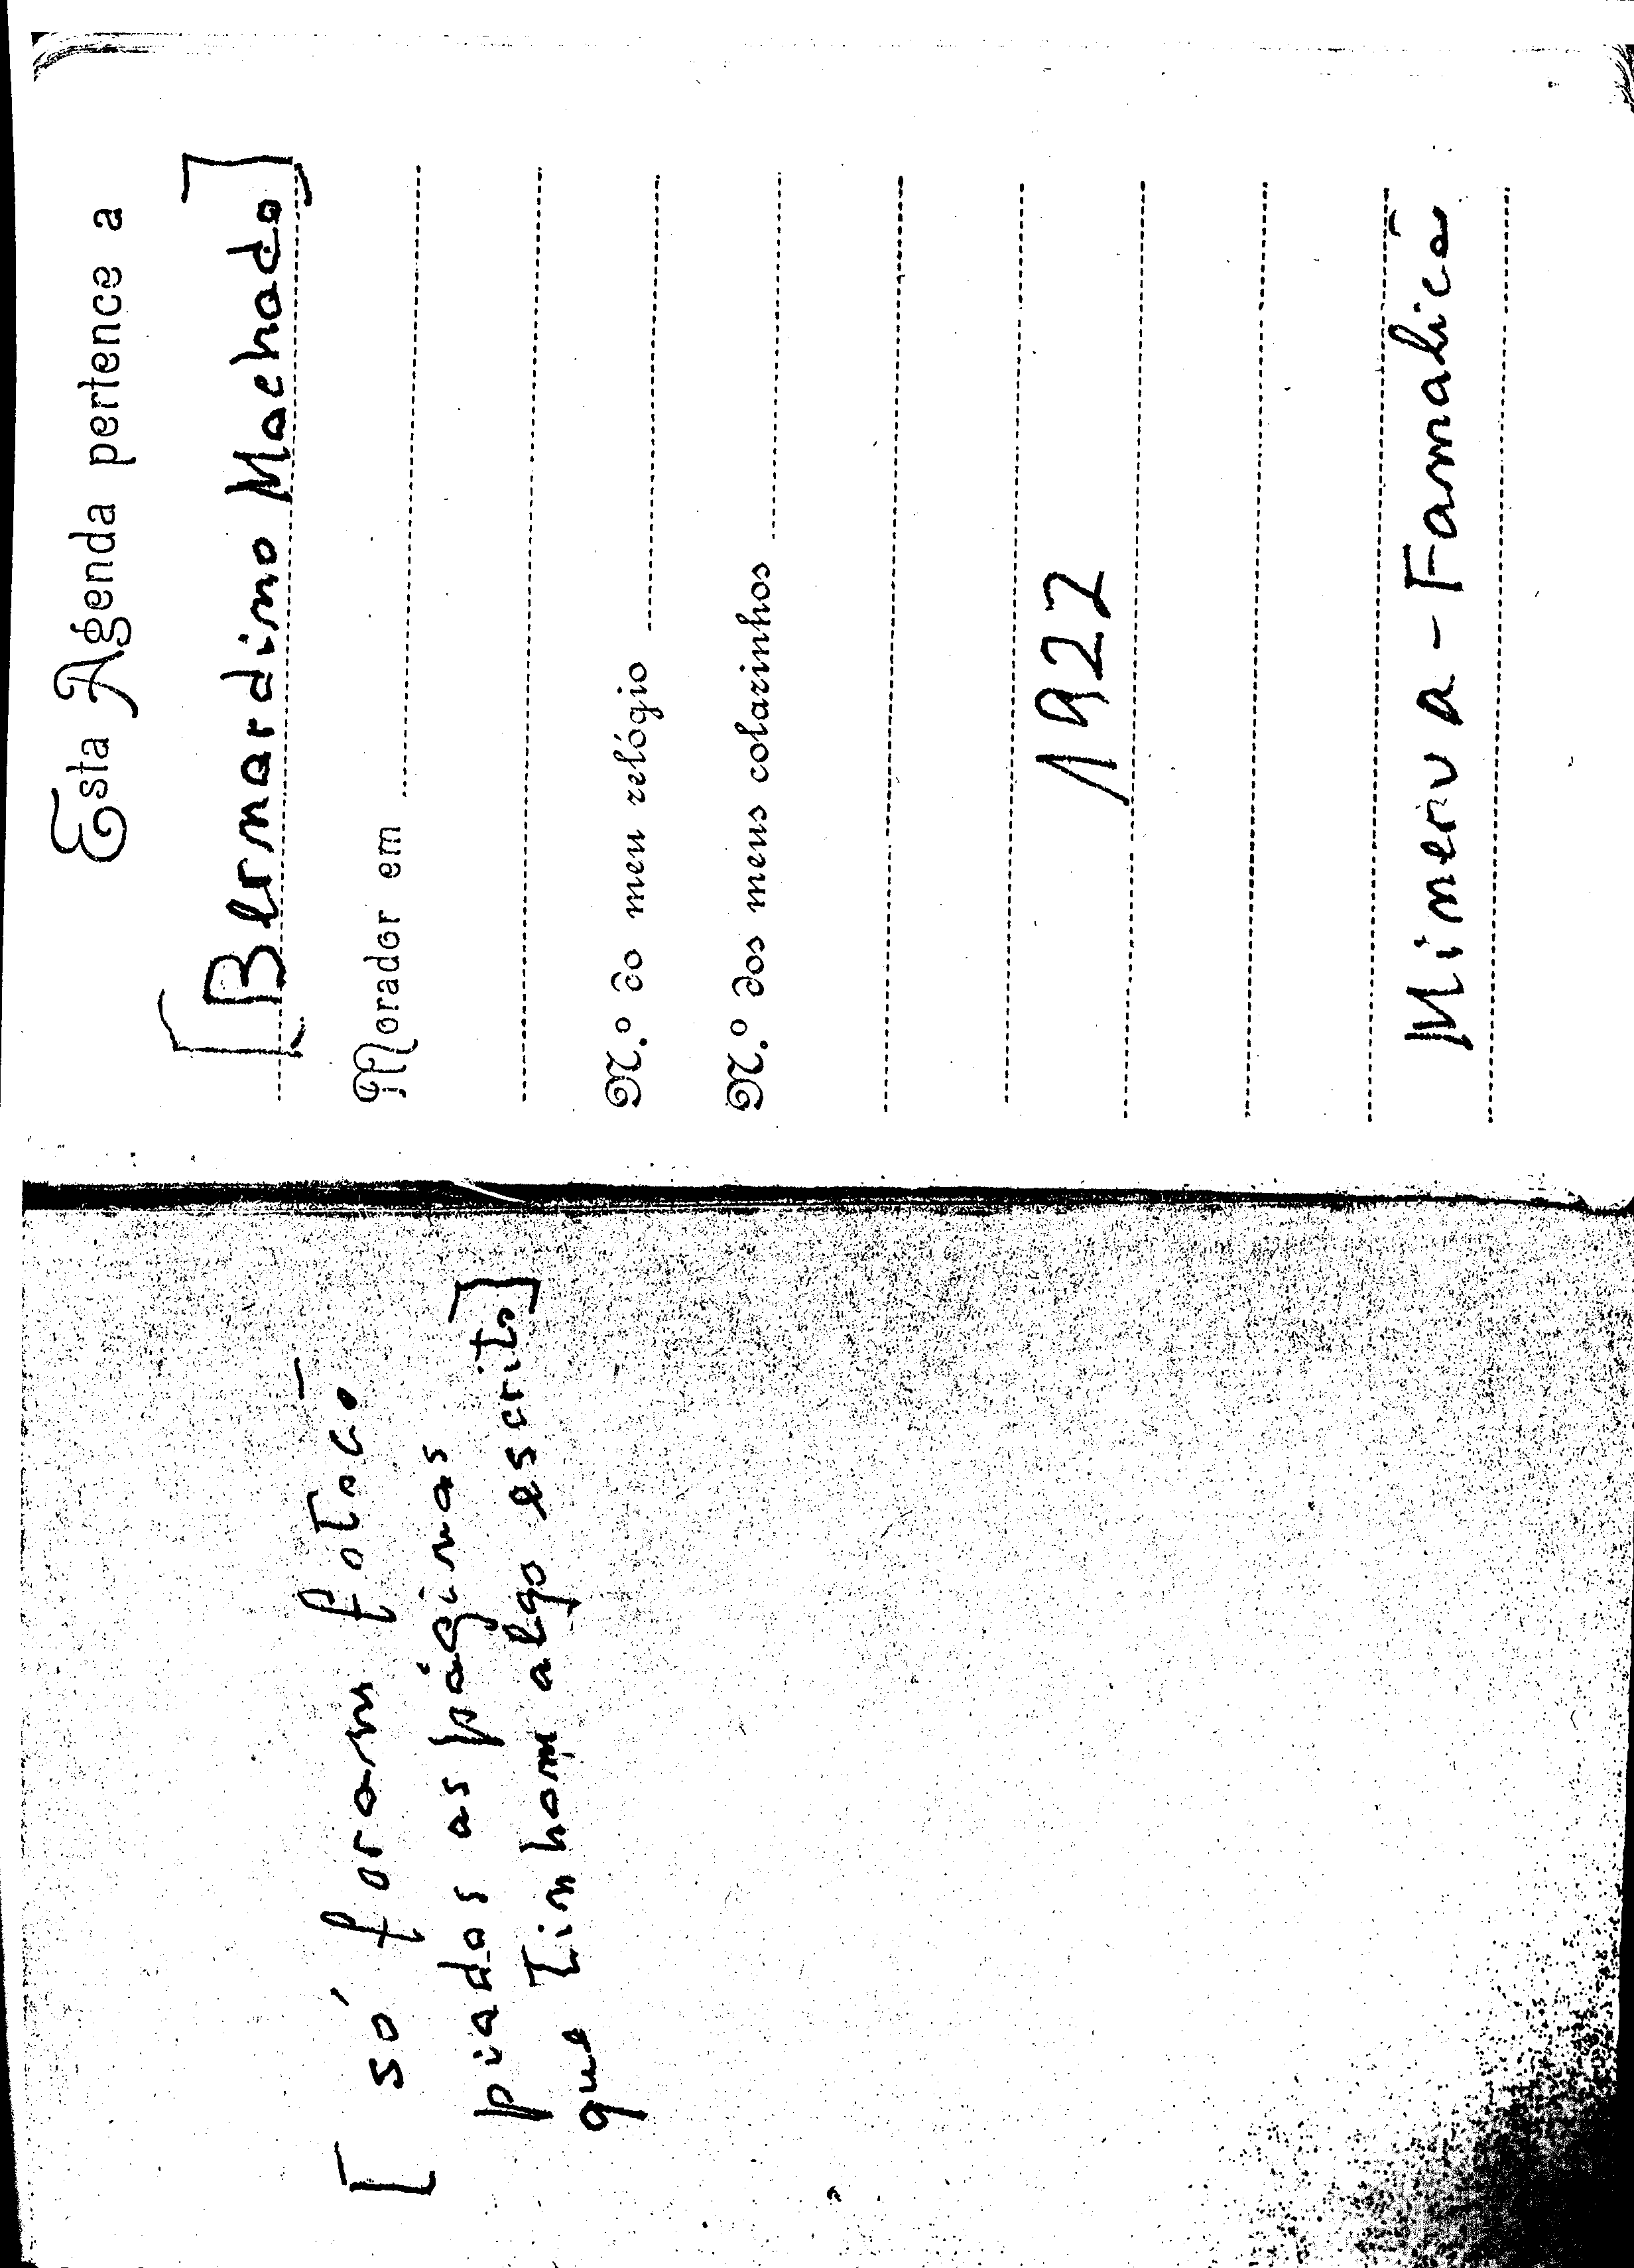 [ só foram fotoco-
piados as páginas
que tinham algo escrito]
Esta Agenda pertence a
[Bernardino Machado]
Morador em
N.º do meu relógio
N.º dos meus colarinhos
1922
Minerva - Famalicão